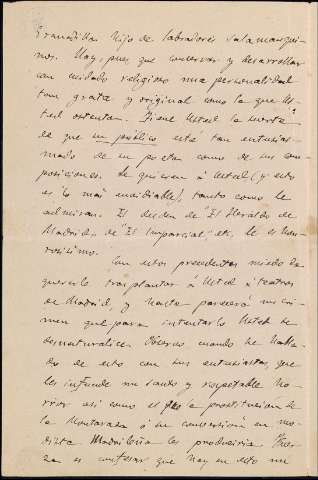 Granadilla. Hijo de labradores salamanqui-
nos. Hay, pues, que conservar y desarrollar
con cuidado religioso una personalidad
tan grata y original como la que Us-
ted ostenta. Tiene Usted la suerte
de que su público está tan entusias-
mado de su poeta como de sus com-
posiciones. Le quieren á Usted (y esto
es lo más envidiable), tanto como le
admiran. El desden de El Heraldo de
Madrid, de El Imparcial etc, le es hon-
rosísimo.
Con estos precedentes miedo da
quererle trasplantar á Usted á teatros
de Madrid, y hasta parecerá un cri-
men que para intentarlo Usted se
desnaturalice. Observo cuando he habla-
do de esto con sus entusiastas, que
les infunde un santo y respetable ho-
rror así como el la prostitucion de
la Montaraza ó su conversión en mo-
dista Madrileña les produciria. Fuer-
za es confesar que hay en esto un